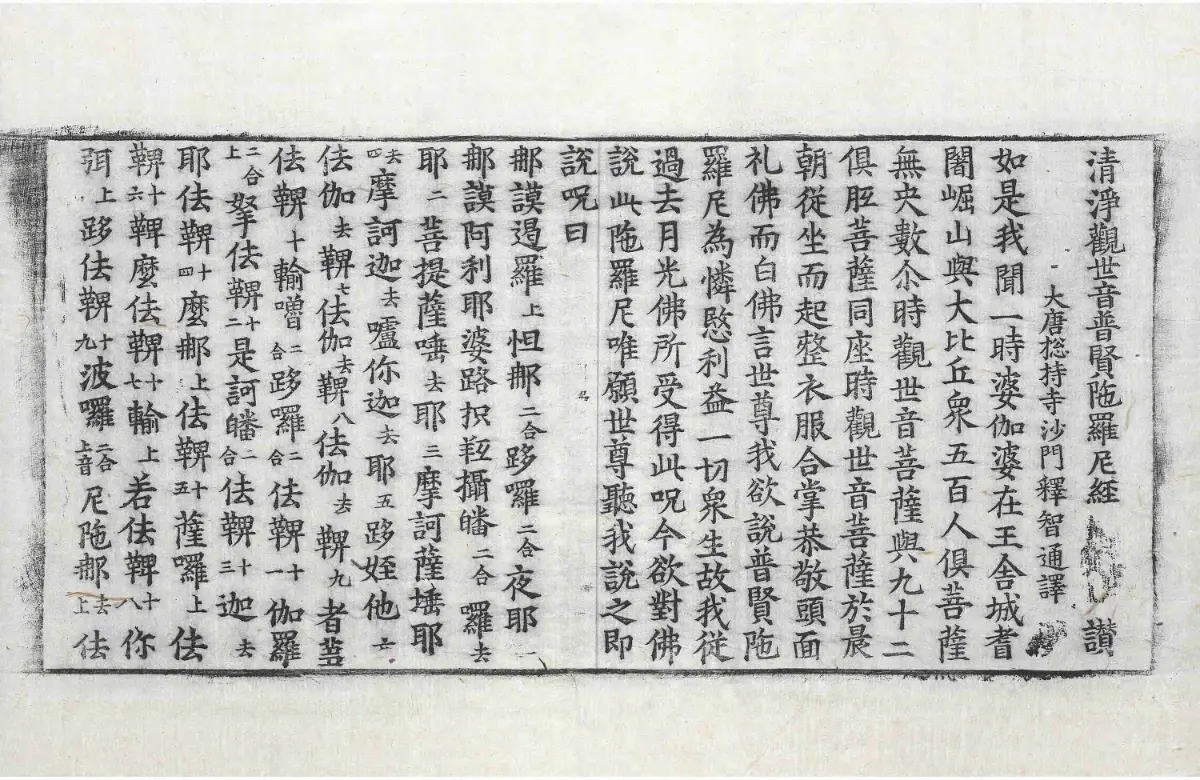 清淨觀世音普賢陁羅尼經 讃
大唐揔持寺沙門釋智通譯
如是我聞一時婆伽婆在王舍城耆
闍崛山與大比丘衆五百人俱菩薩
無央數尒時觀世音菩薩與九十二
俱胝菩薩同座時觀世音菩薩於晨
朝從坐而起整衣服合掌恭敬頭面
礼佛而白佛言世尊我欲說普賢陁
羅尼為憐愍利益一切衆生故我從
過去月光佛所受得此呪今欲對佛
說此陁羅尼唯願世尊聽我說之即
說呪曰
那謨曷羅上怛那二合跢羅二合夜耶一
那謨阿利耶婆路枳羝攝皤二合囉去
耶二菩提薩埵去耶三摩訶薩埵耶
四去摩訶迦去嚧你迦去耶五跢姪他六
佉伽去鞞七佉伽去鞞八佉伽去鞞九者蒭
佉鞞十輸嚕二合跢羅二合佉鞞十一伽羅
二合上拏佉鞞十二是訶皤二合佉鞞十三迦去
耶佉鞞十四麼那上佉鞞十五薩囉上佉
鞞十六鞞麼佉鞞十七輸上若佉鞞十八你
弭上跢佉鞞十九波囉二合上音尼陁那去上佉